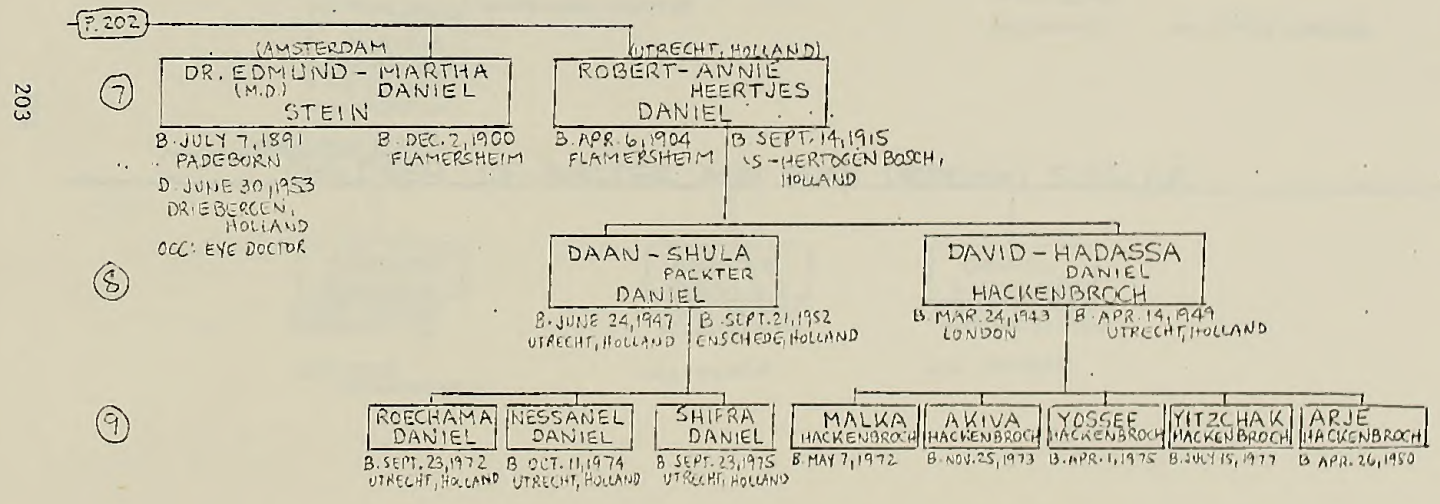 P. 202
203
7
(AMSTERDAM
DR. EDMUND - MARTHA
(M.D.) DANIEL
STEIN
B. JULY 7, 1891
PADEBORN
D. JUNE 30, 1953
DRIEBERGEN,
HOLLAND
OCC: EYE DOCTOR
B. DEC. 2, 1900
FLAMERSHEIM
(UTRECHT, HOLLAND)
ROBERT - ANNIE
HEERTJES
DANIEL
B. APR. 6, 1904
FLAMERSHEIM
B. SEPT. 14, 1915
'S-HERTOGENBOSCH,
HOLLAND
8
DAAN - SHULA
PACKTER
DANIEL
B. JUNE 24, 1947
UTRECHT, HOLLAND
B. SEPT. 21, 1952
ENSCHEDE, HOLLAND
DAVID - HADASSA
DANIEL
HACKENBROCH
B. MAR. 24, 1943
LONDON
B. APR. 14, 1949
UTRECHT, HOLLAND
9
ROECHAMA
DANIEL
B. SEPT. 23, 1972
UTRECHT, HOLLAND
NESSANEL
DANIEL
B OCT. 11, 1974
UTRECHT, HOLLAND
SHIFRA
DANIEL
B SEPT. 23, 1975
UTRECHT, HOLLAND
MALKA
HACKENBROCH
B. MAY 7, 1972
AKIVA
HACKENBROCH
B. NOV. 25, 1973
YOSSEF
HACKENBROCH
B. APR. 1, 1975
YITZCHAK
HACKENBROCH
B. JULY 15, 1977
ARJE
HACKENBROCH
B APR. 26, 1980